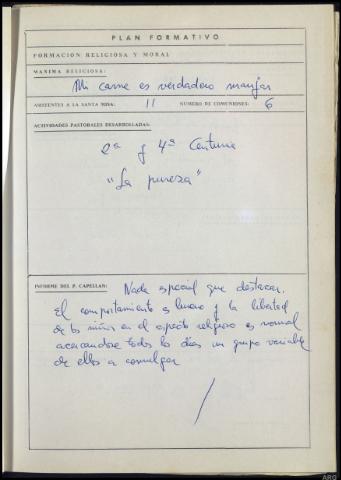 PLAN FORMATIVO
FORMACION RELIGIOSA Y MORAL
MAXIMA RELIGIOSA:
Mi carne es verdadero manjar
ASISTENTES A LA SANTA MISA: 11 NUMERO DE COMUNIONES: 6
ACTIVIDADES PASTORALES DESARROLLADAS:
2ª y 4ª Centuria
"La pureza"
INFORME DEL P. CAPELLAN: Nada especial que destacar.
El comportamiento es bueno y la libertad
de los niños en el aspecto religioso es normal
acercandose todos los días un grupo variable
de ellos a comulgar
ARG